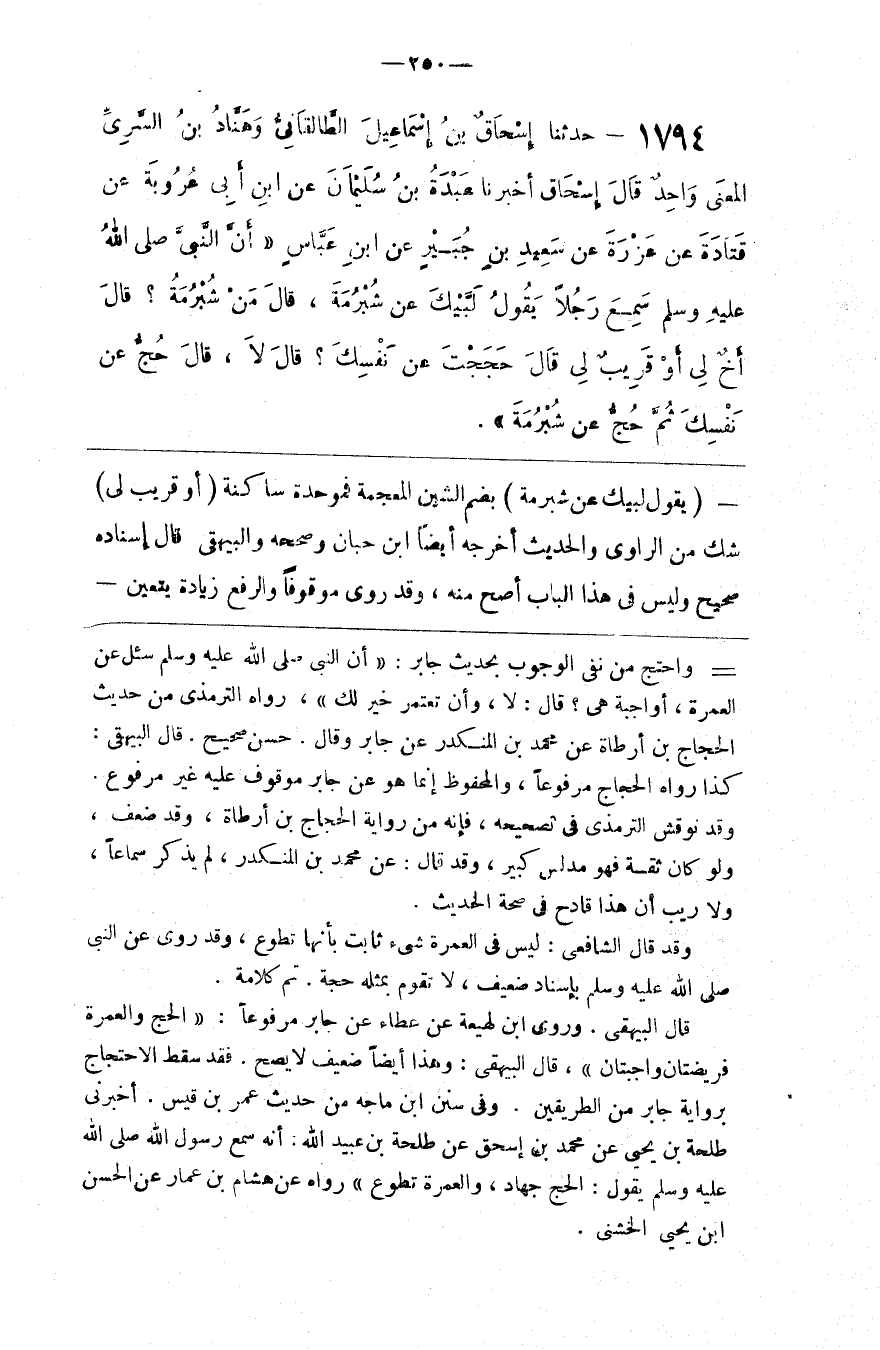 —٢٥٠—
١٧٩٤ – حدثنا إِسْحَاقُ بنُ إِسْمَاعِيلَ الطَّالقَانِىُّ وَهَنَّادُ بنُ السَّرِىِّ
المعنَى وَاحِدٌ قالَ إِسْحَاق أخبرنا عَبْدَةُ بنُ سُلَيْمَانَ عن ابنِ أَبِى عُرُوبَةَ عن
قَتَادَةَ عن عَزْرَةَ عن سَعِيدِ بنِ جُبَيْرٍ عن ابنِ عَبَّاسٍ « أَنَّ النَّبىَّ صلى اللهُ
عليهِ وسلم سَمِعَ رَجُلاً يَقُولُ لَبَّيْكَ عن شُبْرُمَةَ ، قالَ مَنْ شُبْرُمَةُ ؟ قالَ
أَخٌ لِى أَوْ قَرِيبٌ لِى قالَ حَجَجْتَ عن نَفْسِكَ ؟ قالَ لاَ ، قالَ حُجَّ عن
نَفْسِكَ ثُمَّ حُجَّ عن شُبْرُمَةَ » .
— ( يقول لبيك عن شبرمة ) بضم الشين المعجمة فموحدة ساكنة ( أو قريب لى )
شك من الراوى والحديث أخرجه أيضاً ابن حبان وصححه والبيهقى قال إسناده
صحيح وليس فى هذا الباب أصح منه ، وقد روى موقوفاً والرفع زيادة يتعين —
= واحتج من نفى الوجوب بحديث جابر : « أن النبى صلى الله عليه وسلم سئل عن
العمرة ، أواجبة هى ؟ قال : لا ، وأن تعتمر خير لك » ، رواه الترمذى من حديث
الحجاج بن أرطاة عن محمد بن المنكدر عن جابر وقال . حسن صحيح . قال البيهقى :
كذا رواه الحجاج مرفوعاً ، والمحفوظ إنما هو عن جابر موقوف عليه غير مرفوع .
وقد نوقش الترمذى فى تصحيحه ، فإنه من رواية الحجاج بن أرطاة ، وقد ضعف ،
ولو كان ثقة فهو مدلس كبير ، وقد قال : عن محمد بن المنكدر ، لم يذكر سماعاً ،
ولا ريب أن هذا قادح فى صحة الحديث .
وقد قال الشافعى : ليس فى العمرة شىء ثابت بأنها تطوع ، وقد روى عن النبى
صلى الله عليه وسلم بإسناد ضعيف ، لا تقوم بمثله حجة . تم كلامة .
قال البيهقى . وروى ابن لهيعة عن عطاء عن جابر مرفوعاً : « الحج والعمرة
فريضتان واجبتان » ، قال البيهقى : وهذا أيضاً ضعيف لايصح . فقد سقط الاحتجاج
برواية جابر من الطريقين . وفى سنن ابن ماجه من حديث عمر بن قيس . أخبرنى
طلحة بن يحيى عن محمد بن إسحق عن طلحة بن عبيد الله : أنه سمع رسول الله صلى الله
عليه وسلم يقول : الحج جهاد ، والعمرة تطوع » رواه عن هشام بن عمار عن الحسن
ابن يحيى الخشنى .